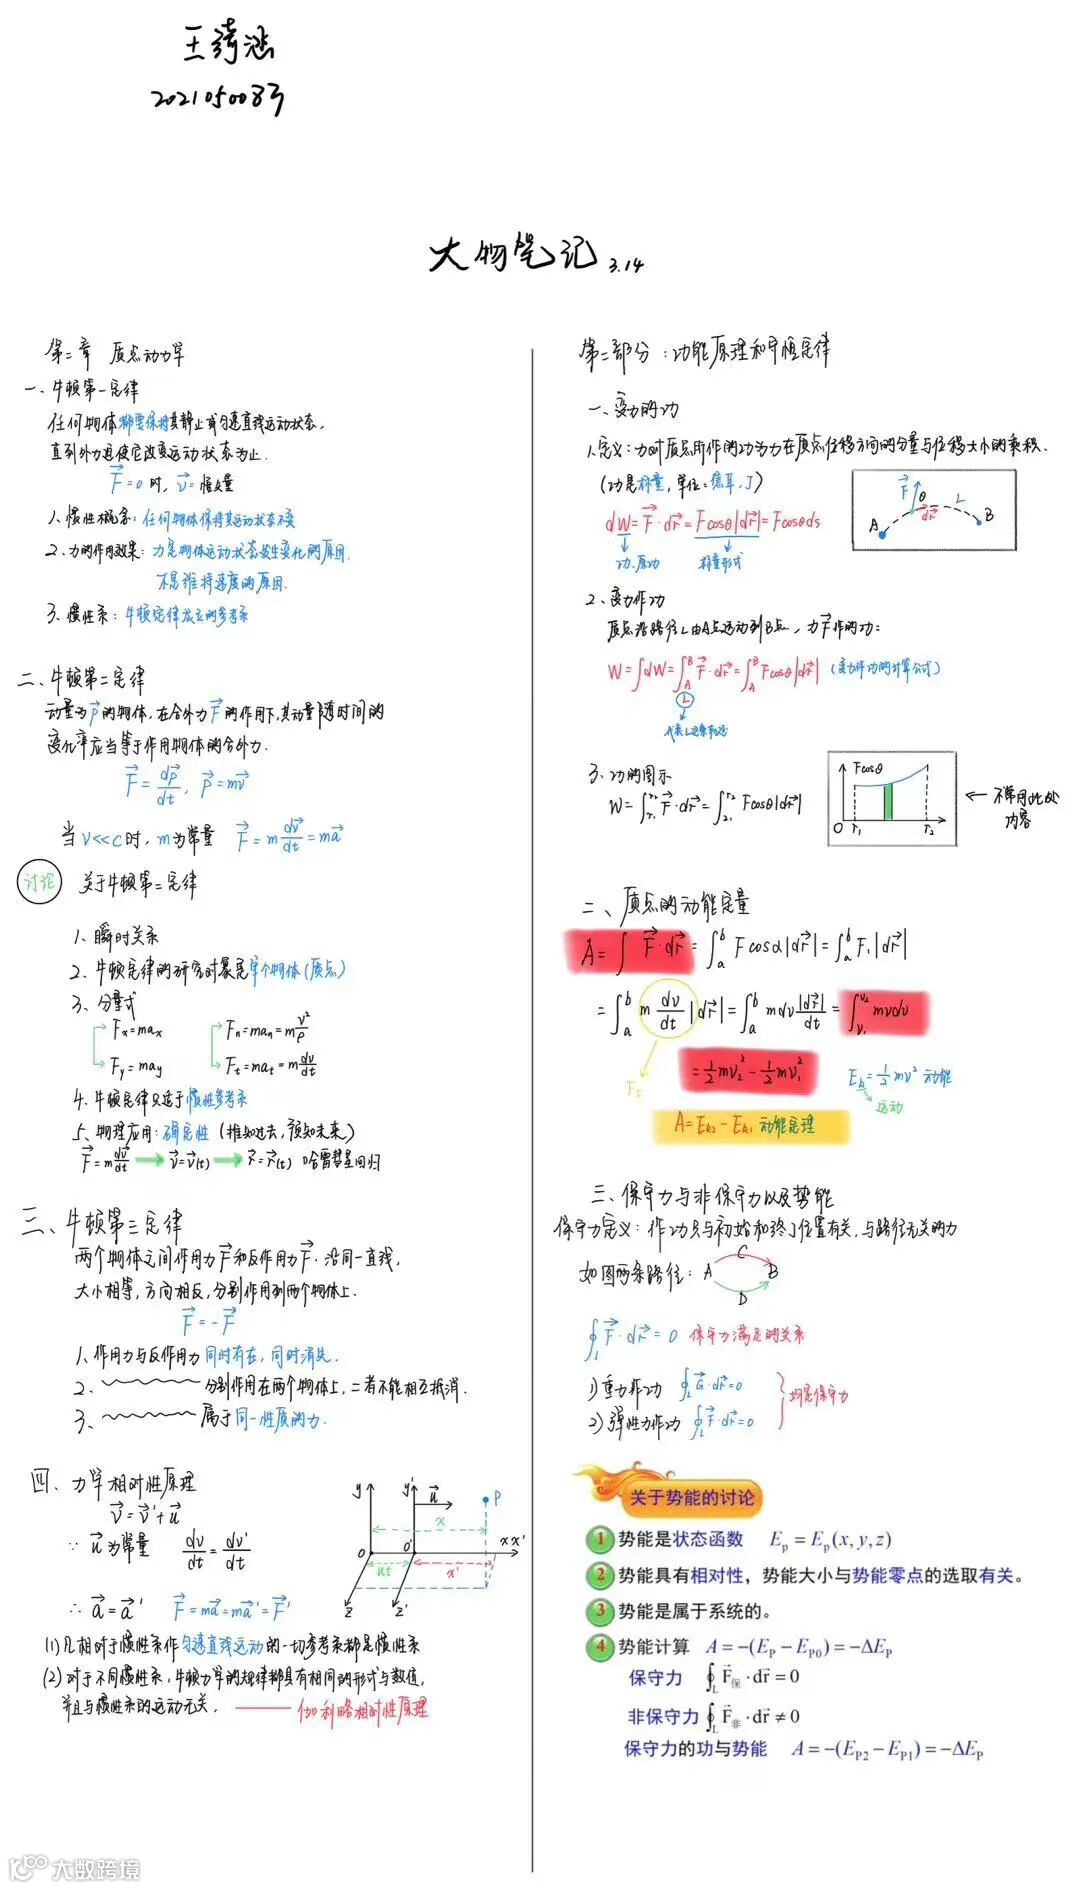 王绮涵
2021050083
大物笔记 3.14
第二章 质点动力学
一、牛顿第一定律
任何物体都要保持其静止或匀速直线运动状态,
直到外力迫使它改变运动状态为止.
F⃗=0 时, v⃗=恒矢量
1、惯性概念:任何物体保持其运动状态不变
2、力的作用效果:力是物体运动状态发生变化的原因,
不是维持速度的原因.
3、惯性系:牛顿定律成立的参考系
二、牛顿第二定律
动量为P⃗的物体,在合外力F⃗的作用下,其动量随时间的
变化率应当等于作用物体的合外力.
F⃗=dp⃗/dt, p⃗=mv⃗
当v<<c时,m为常量 F⃗=m dv⃗/dt=ma⃗
讨论 关于牛顿第二定律
1、瞬时关系
2、牛顿定律的研究对象是单个物体(质点)
3、分量式
Fx=max Fn=man=m v²/ρ
Fy=may Ft=mat=m dv/dt
4、牛顿定律只适于惯性参考系
5、物理应用:确定性(推知过去,预知未来)
F⃗=m dv⃗/dt → v⃗=v⃗(t) → r⃗=r⃗(t) 哈雷彗星回归
三、牛顿第三定律
两个物体之间作用力F⃗和反作用力F⃗,沿同一直线,
大小相等,方向相反,分别作用到两个物体上.
F⃗=-F⃗
1、作用力与反作用力同时存在,同时消失.
2、 分别作用在两个物体上,二者不能相互抵消.
3、 属于同一性质的力.
四、力学相对性原理
v⃗=v⃗'+u⃗
∵ u⃗为常量 dv/dt=dv'/dt
∴ a⃗=a⃗' F⃗=ma⃗=ma⃗'=F⃗'
y y' u⃗ P
x
o o' x x'
ut x'
z z'
(1)凡相对于惯性系作匀速直线运动的一切参考系都是惯性系
(2)对于不同惯性系,牛顿力学的规律都具有相同的形式与数值,
并且与惯性系的运动无关. —— 伽利略相对性原理
第二部分:功能原理和守恒定律
一、变力的功
1、定义:力对质点所作的功为力在质点位移方向的分量与位移大小的乘积.
(功是标量,单位:焦耳,J)
dW=F⃗·dr⃗=Fcosθ|dr⃗|=Fcosθds
功.原功 标量形式
F⃗ θ L
A dr⃗ B
2、变力作功
质点沿路径L由A点运动到B点,力F⃗作的功:
W=∫dW=∫_A^B F⃗·dr⃗=∫_A^B Fcosθ|dr⃗| (变力作功的计算公式)
L
3、功的图示
W=∫_{r₁}^{r₂} F⃗·dr⃗=∫_{2₁}^{r₂} Fcosθ|dr⃗|
Fcosθ
O r₁ r₂
← 不常用此处
内容
二、质点的动能定量
A=∫F⃗·dr⃗=∫_a^b Fcosα|dr⃗|=∫_a^b F₁|dr⃗|
=∫_a^b m dv/dt|dr⃗|=∫_a^b mdv |dr⃗|/dt=∫_{v₁}^{v₂} mvdv
=½mv₂²-½mv₁²
Ek=½mv² 动能
运动
A=Ek2-Ek1 动能定理
三、保守力与非保守力以及势能
保守力定义:作功只与初始和终了位置有关,与路径无关的力
如图两条路径: A C B D
∮_L F⃗·dr⃗=0 保守力满足的关系
1)重力作功 ∮_L G⃗·dr⃗=0
2)弹性力作功 ∮_L F⃗·dr⃗=0
均是保守力
关于势能的讨论
1 势能是状态函数 Ep=Ep(x,y,z)
2 势能具有相对性,势能大小与势能零点的选取有关。
3 势能是属于系统的。
4 势能计算 A=-(EP-EP0)=-ΔEP
保守力 ∮_L F⃗保·dr⃗=0
非保守力 ∮_L F⃗非·dr⃗≠0
保守力的功与势能 A=-(EP2-EP1)=-ΔEP
大数跨境